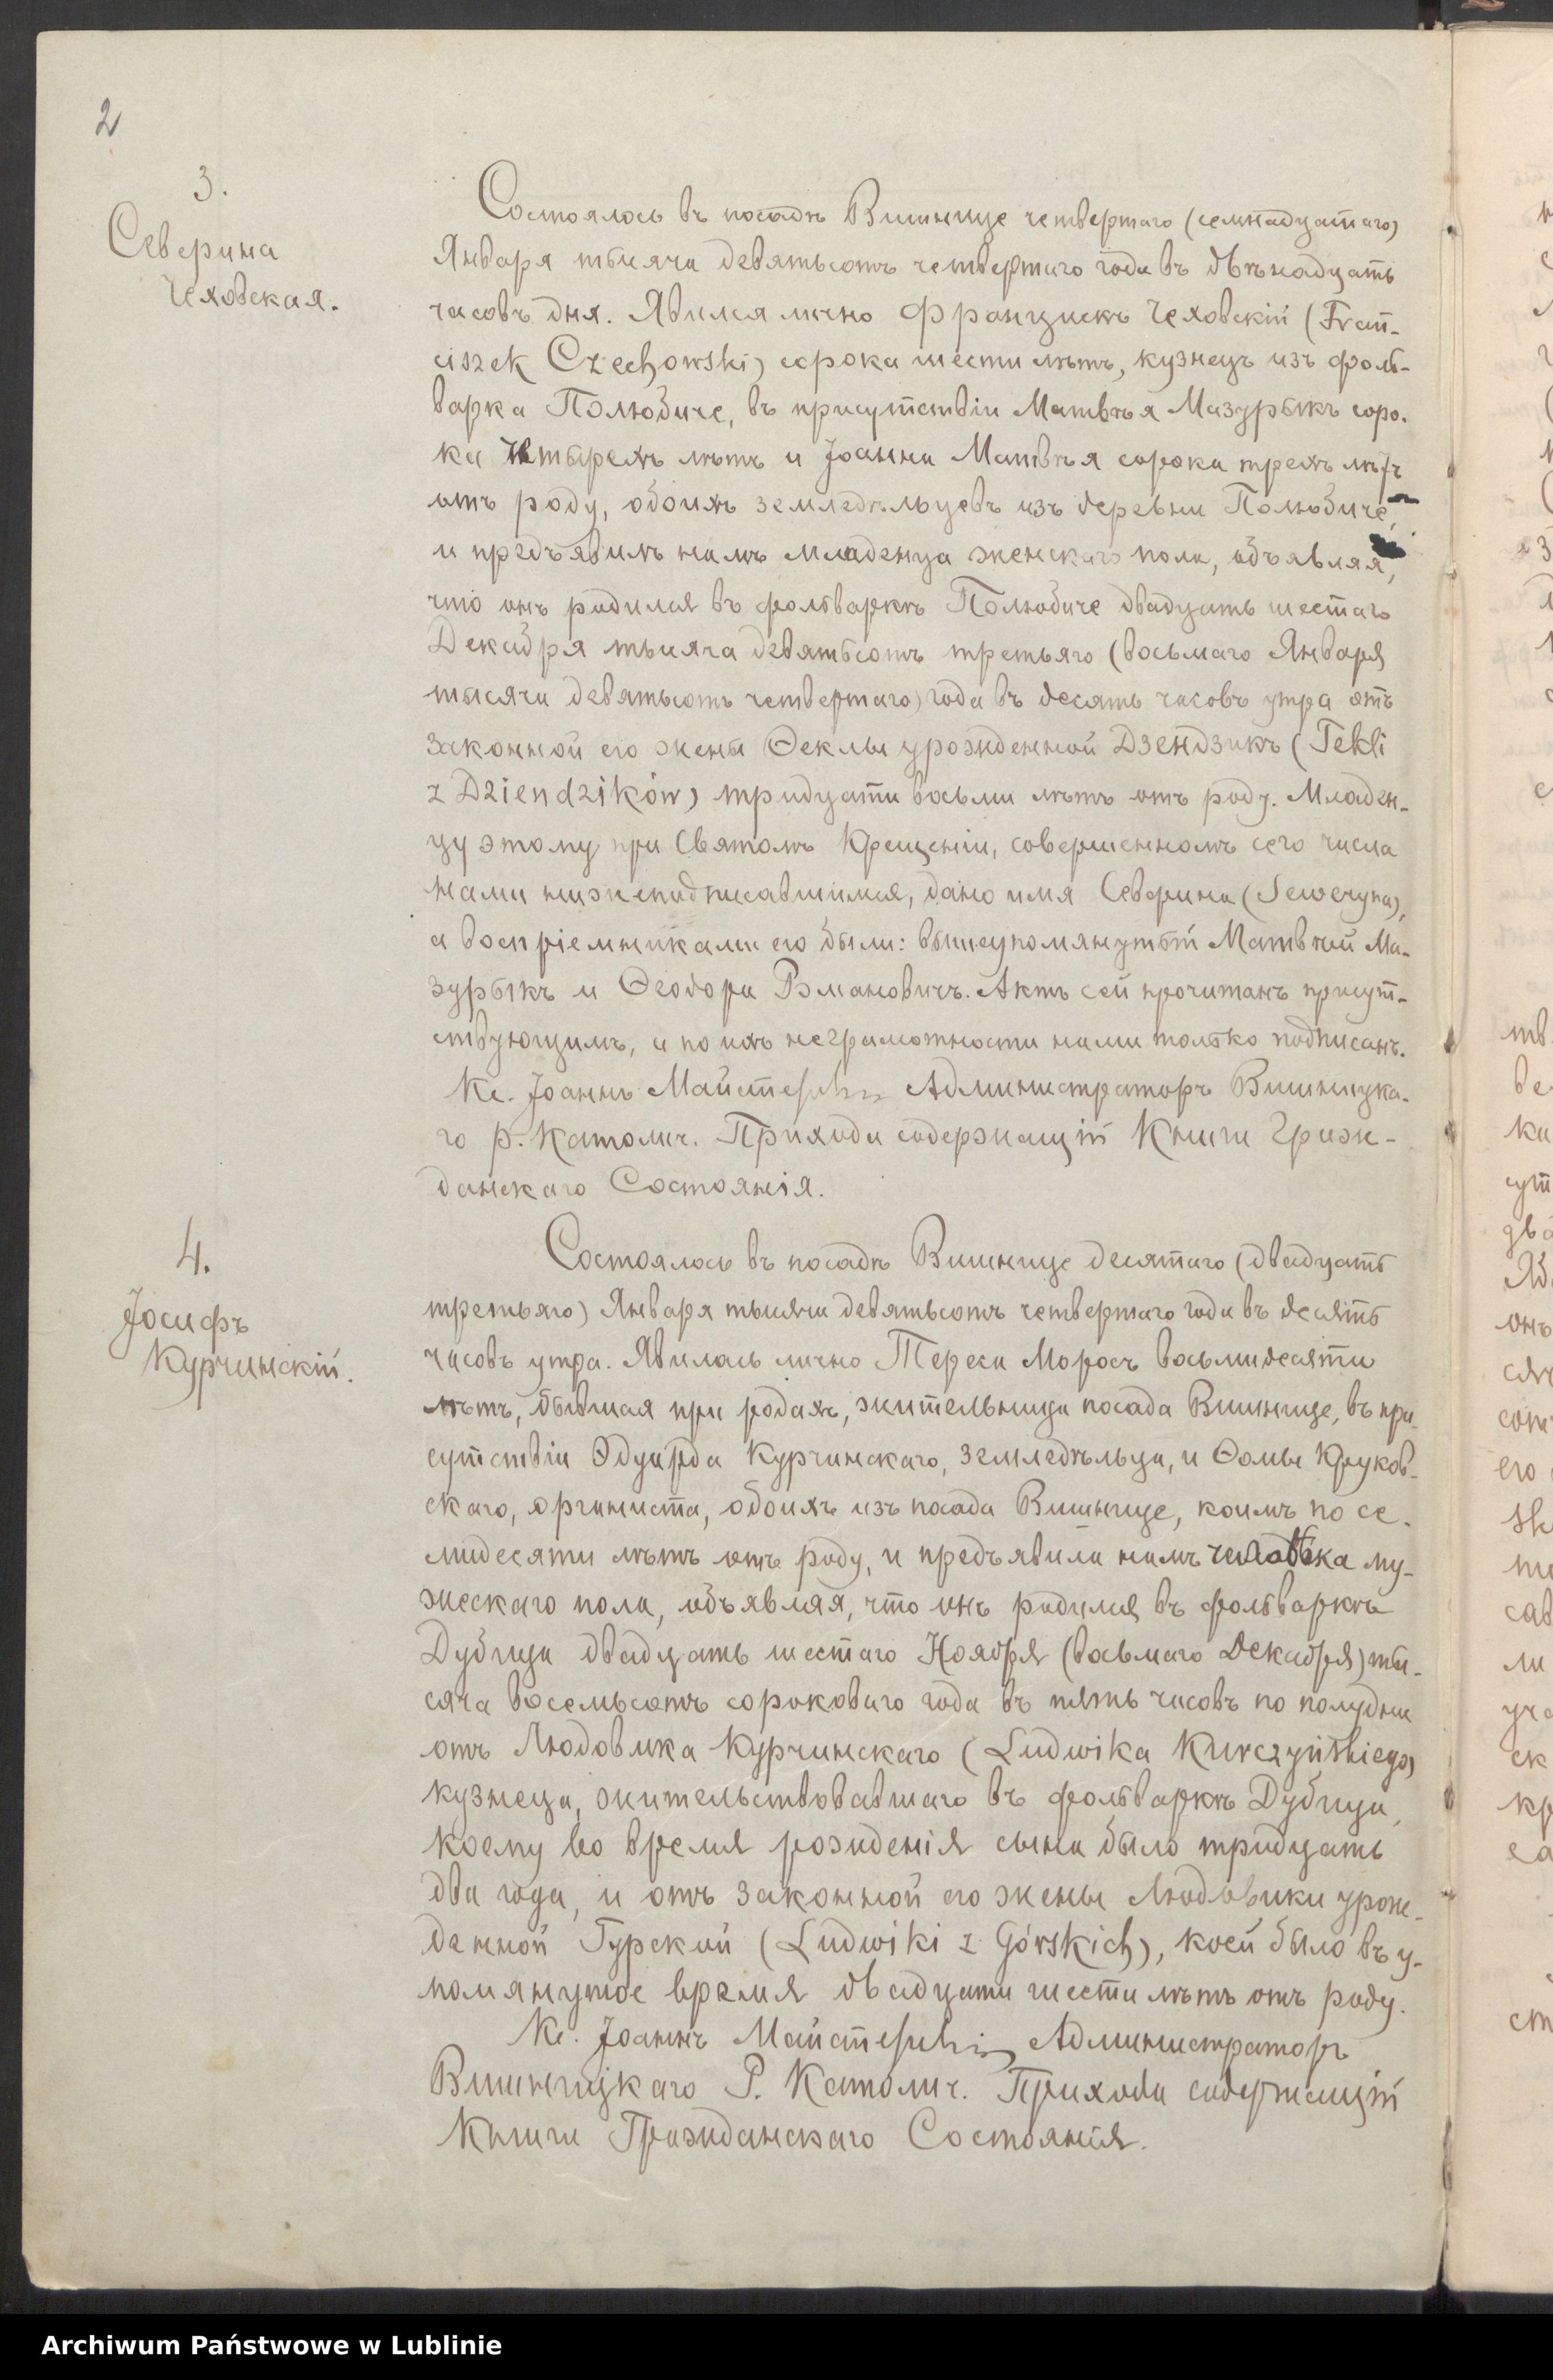 2
3.
Северина
Чеховская.
Состоялось въ посадѣ Вишнице четвертаго (семнадцатаго)
Января тысяча девятьсотъ четвертаго года въ двѣнадцать
часовъ дня. Явился лично Францискъ Чеховскій (Fran-
ciszek Czechowski) сорока шести лѣтъ, кузнецъ изъ фоль-
варка Полюбиче, въ присутствіи Матвѣя Мазурыкъ соро-
ка четырехъ лѣтъ и Іоанна Матвѣя сорока трехъ лѣтъ
отъ роду, обоихъ земледѣльцевъ изъ деревни Полюбиче,
и предъявилъ намъ младенца женскаго пола, объявляя,
что онъ родился въ фольваркѣ Полюбиче двадцать шестаго
Декабря тысяча девятьсотъ третьяго (восьмаго Января
тысяча девятьсотъ четвертаго) года въ десять часовъ утра отъ
законной его жены Ѳеклы урожденной Дзендзикъ (Tekli
z Dziendzików) тридцати восьми лѣтъ отъ роду. Младен-
цу этому при Святомъ Крещеніи, совершенномъ сего числа
нами нижеподписавшимся, дано имя Северина (Seweryna),
а воспріемниками его были: вышеупомянутый Матвѣй Ма-
зурыкъ и Ѳеодора Романовичъ. Актъ сей прочитанъ присут-
ствующимъ, а по ихъ неграмотности нами только подписанъ.
Кс. Іоаннъ Администраторъ Вишницка-
го р. Католич. Прихода содержащій Книги Граж-
данскаго Состоянія.
4.
Іосифъ
Курчинскій.
Состоялось въ посадѣ Вишнице десятаго (двадцать
третьяго) Января тысяча девятьсотъ четвертаго года въ десять
часовъ утра. Явилась лично Тереса Моросъ восьмидесяти
лѣтъ, бывшая при родахъ, жительница посада Вишнице, въ при-
сутствіи Эдуарда Курчинскаго, земледѣльца, и Ѳомы Круков-
скаго, органиста, обоихъ изъ посада Вишнице, коимъ по се-
мидесяти лѣтъ отъ роду, и предъявила намъ человѣка му-
жескаго пола, объявляя, что онъ родился въ фольваркѣ
Дубица двадцать шестаго Ноября (восьмаго Декабря) ты-
сяча восемьсотъ сороковаго года въ пять часовъ по полудни
отъ Людовика Курчинскаго (Ludwika Kurczyńskiego)
кузнеца, жительствовавшаго въ фольваркѣ Дубица,
коему во время рожденія сына было тридцать
два года, и отъ законной его жены Людовики урож-
денной Гурской (Ludwiki z Górskich), коей было въ у-
помянутое время двадцати шести лѣтъ отъ роду.
Кс. Іоаннъ Администраторъ
Вишницкаго Р. Католич. Прихода содержащій
Книги Гражданскаго Состоянія.
Archiwum Państwowe w Lublinie